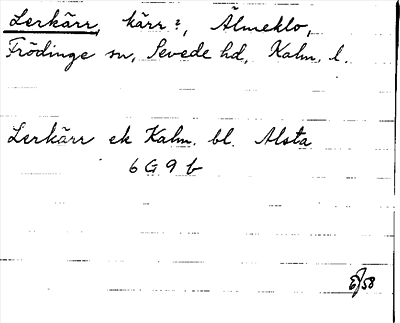 Lerkärr, kärr?, Älmeklo,
Frödinge sn, Sevede hd, Kalm. l.
Lerkärr ek Kalm. bl. Alsta
6 G 9 b
/58